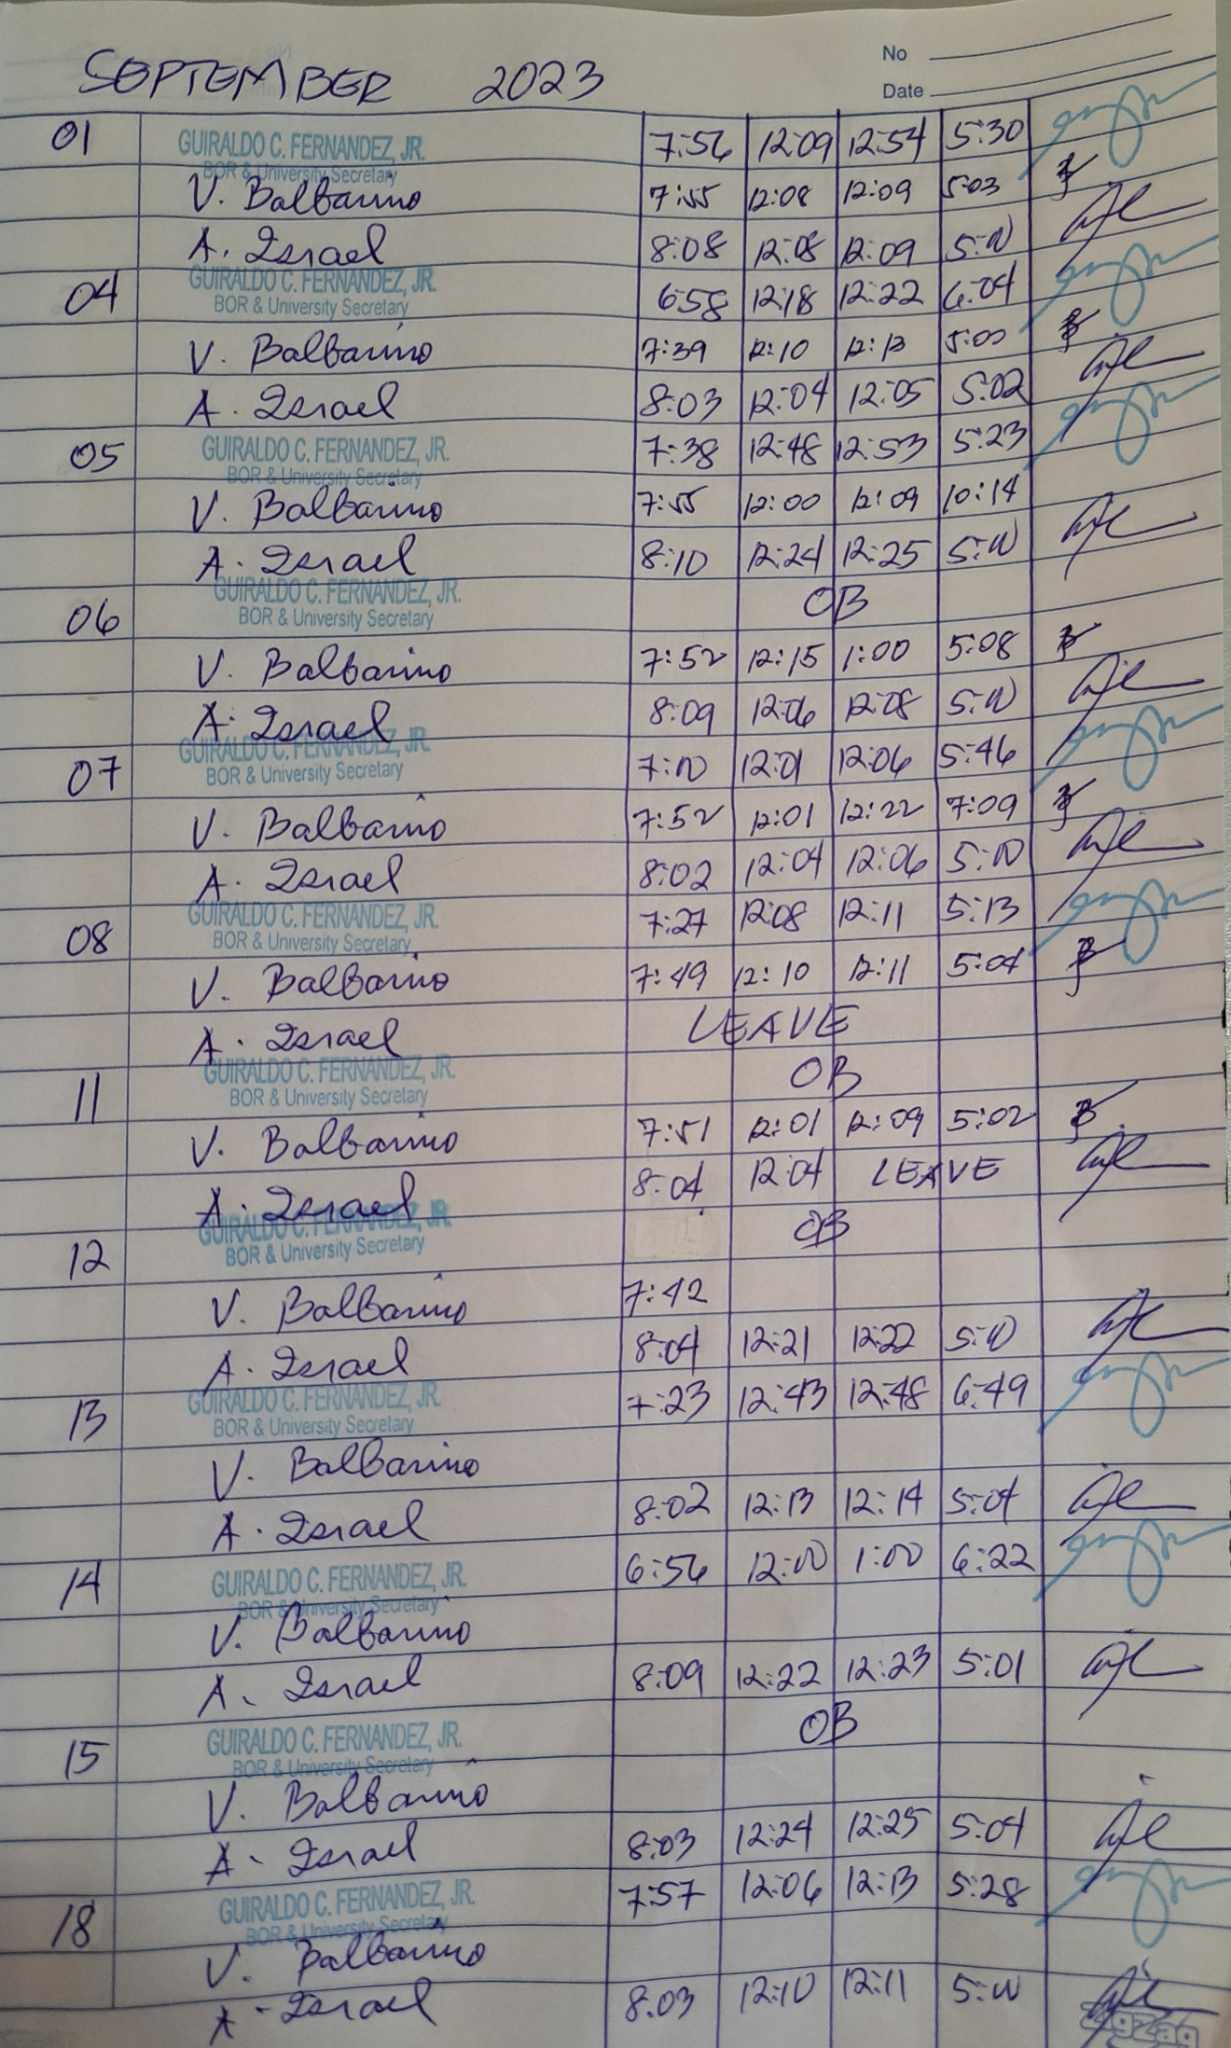 No
SEPTEMBER 2023
Date
01 GUIRALDO C. FERNANDEZ, JR. 7:56 12:09 12:54 5:30
BOR & University Secretary
V. Balbarino 7:55 12:08 12:09 5:03
A. Israel 8:08 12:08 12:09 5:00
04 GUIRALDO C. FERNANDEZ, JR. 6:58 12:18 12:22 6:04
BOR & University Secretary
V. Balbarino 7:39 12:10 12:13 5:00
A. Israel 8:03 12:04 12:05 5:02
05 GUIRALDO C. FERNANDEZ, JR. 7:38 12:48 12:53 5:23
BOR & University Secretary
V. Balbarino 7:55 12:00 12:09 10:14
A. Israel 8:10 12:24 12:25 5:00
06 GUIRALDO C. FERNANDEZ, JR. OB
BOR & University Secretary
V. Balbarino 7:52 12:15 1:00 5:08
A. Israel 8:09 12:06 12:08 5:00
07 GUIRALDO C. FERNANDEZ, JR. 7:00 12:01 12:06 5:46
BOR & University Secretary
V. Balbarino 7:52 12:01 12:22 7:09
A. Israel 8:02 12:04 12:06 5:00
08 GUIRALDO C. FERNANDEZ, JR. 7:27 12:08 12:11 5:13
BOR & University Secretary
V. Balbarino 7:49 12:10 12:11 5:04
A. Israel LEAVE
11 GUIRALDO C. FERNANDEZ, JR. OB
BOR & University Secretary
V. Balbarino 7:51 12:01 12:09 5:02
A. Israel 8:04 12:04 LEAVE
12 GUIRALDO C. FERNANDEZ, JR. OB
BOR & University Secretary
V. Balbarino 7:42
A. Israel 8:04 12:21 12:22 5:00
13 GUIRALDO C. FERNANDEZ, JR. 7:23 12:43 12:48 6:49
BOR & University Secretary
V. Balbarino
A. Israel 8:02 12:13 12:14 5:04
14 GUIRALDO C. FERNANDEZ, JR. 6:56 12:00 1:00 6:22
BOR & University Secretary
V. Balbarino
A. Israel 8:09 12:22 12:23 5:01
15 GUIRALDO C. FERNANDEZ, JR. OB
BOR & University Secretary
V. Balbarino
A. Israel 8:03 12:24 12:25 5:04
18 GUIRALDO C. FERNANDEZ, JR. 7:57 12:06 12:13 5:28
BOR & University Secretary
V. Balbarino
A. Israel 8:03 12:10 12:11 5:00
ZigZag